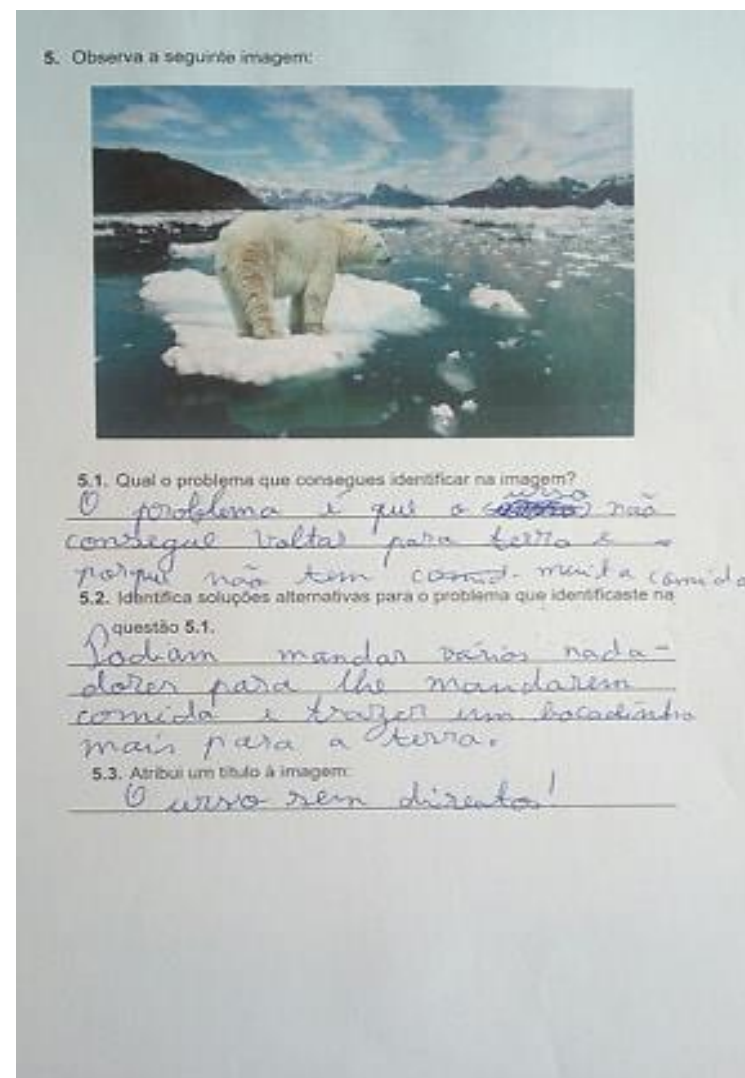 5. Observa a seguinte imagem:
5.1. Qual o problema que consegues identificar na imagem?
O problema é que o urso não
consegue voltar para terra e
porque não tem comid. muita comida
5.2. Identifica soluções alternativas para o problema que identificaste na
questão 5.1.
Podiam mandar vários nada-
dores para lhe mandarem
comida e trazer um bocadinho
mais para a terra.
5.3. Atribui um título à imagem:
O urso sem direitos!